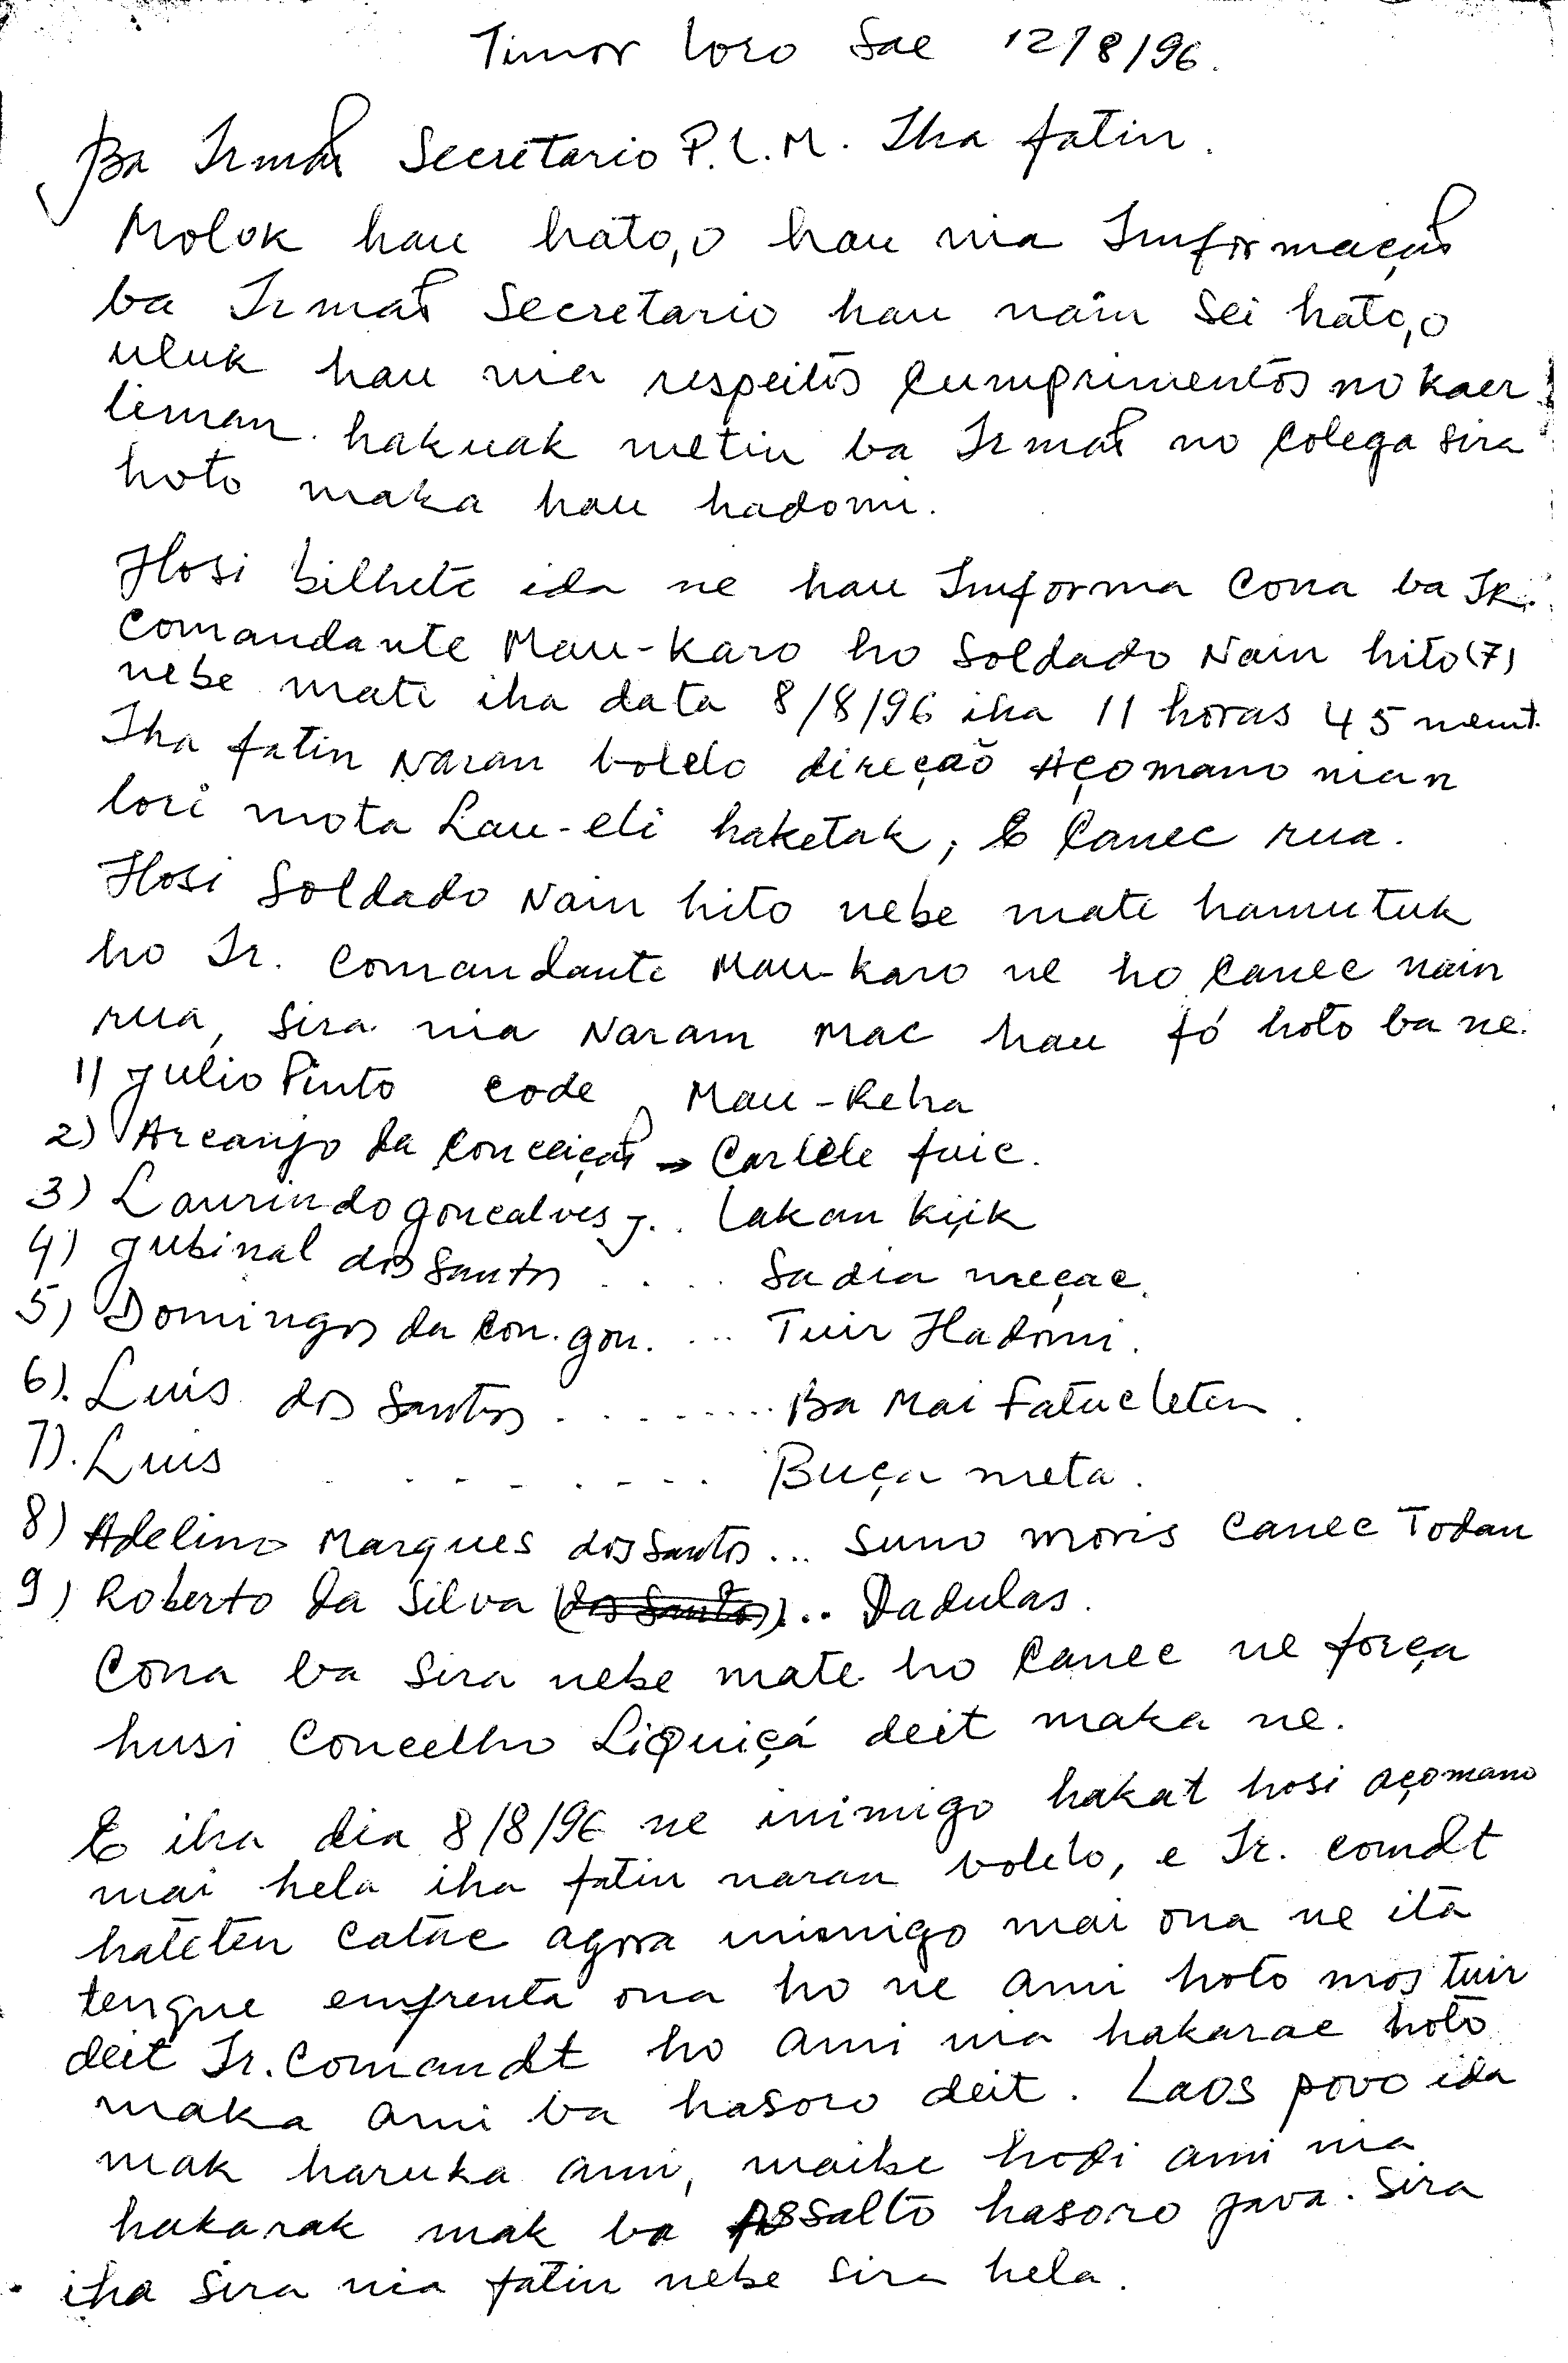 Timor Loro Sae 12/8/96.
Ba Irmão Secretario P.L.M. Iha fatin.
Molok hau hato,o hau nia Imformação
ba Irmão Secretario hau nain sei hato,o
uluk hau nia respeitos Cumprimentos no kaer
liman. hakuak metin ba Irmão no Colega sira
hoto maka hau hadomi.
Hosi bilhete ida ne hau Imforma Cona ba Ir.
Comandante Mau-Karo ho Soldado Nain hito(7)
nebe mate iha data 8/8/96 iha 11 horas 45 menut.
Iha fatin Naran bolelo direção Açomano nian
lori mota Lau-eli haketak, E Canec rua.
Hosi Soldado Nain hito nebe mate hamutuk
ho Ir. Comandante Mau-Karo ne ho Canec nain
rua, sira nia Naram Mac hau fó hoto ba ne.
1) Julio Pinto code Mau-Reha
2) Arcanjo da Conceição → Carlele fuic.
3) Laurindo goncalves j.. Lakan kiik
4) Jubinal dos Santos .... Sadia meçac.
5) Domingos da Con. gon. ... Tuir Hadomi.
6). Luis dos Santos ........ Ba Mai Fatucleten.
7). Luis ........ Buça meta.
8) Adelino Marques dos Santos ... Suno moris Canec Todan
9) Roberto da Silva (dos Santos)... Dadulas.
Cona ba sira nebe mate ho Canec ne força
husi Concelho Liquiçá deit maka ne.
E iha dia 8/8/96 ne inimigo hakat hosi açomano
mai hela iha fatin naran bolelo, e Ir. comdt
hateten Catac agora inimigo mai ona ne ita
tengue emfrenta ona ho ne ami hoto mos tuir
deit Ir. Comandt ho ami nia hakarac hoto
maka ami ba hasoro deit. Laos povo ida
mak haruka ami, maibe hodi ami nia
hakarak mak ba Assalto hasoro java. Sira
iha sira nia fatin nebe sira hela.